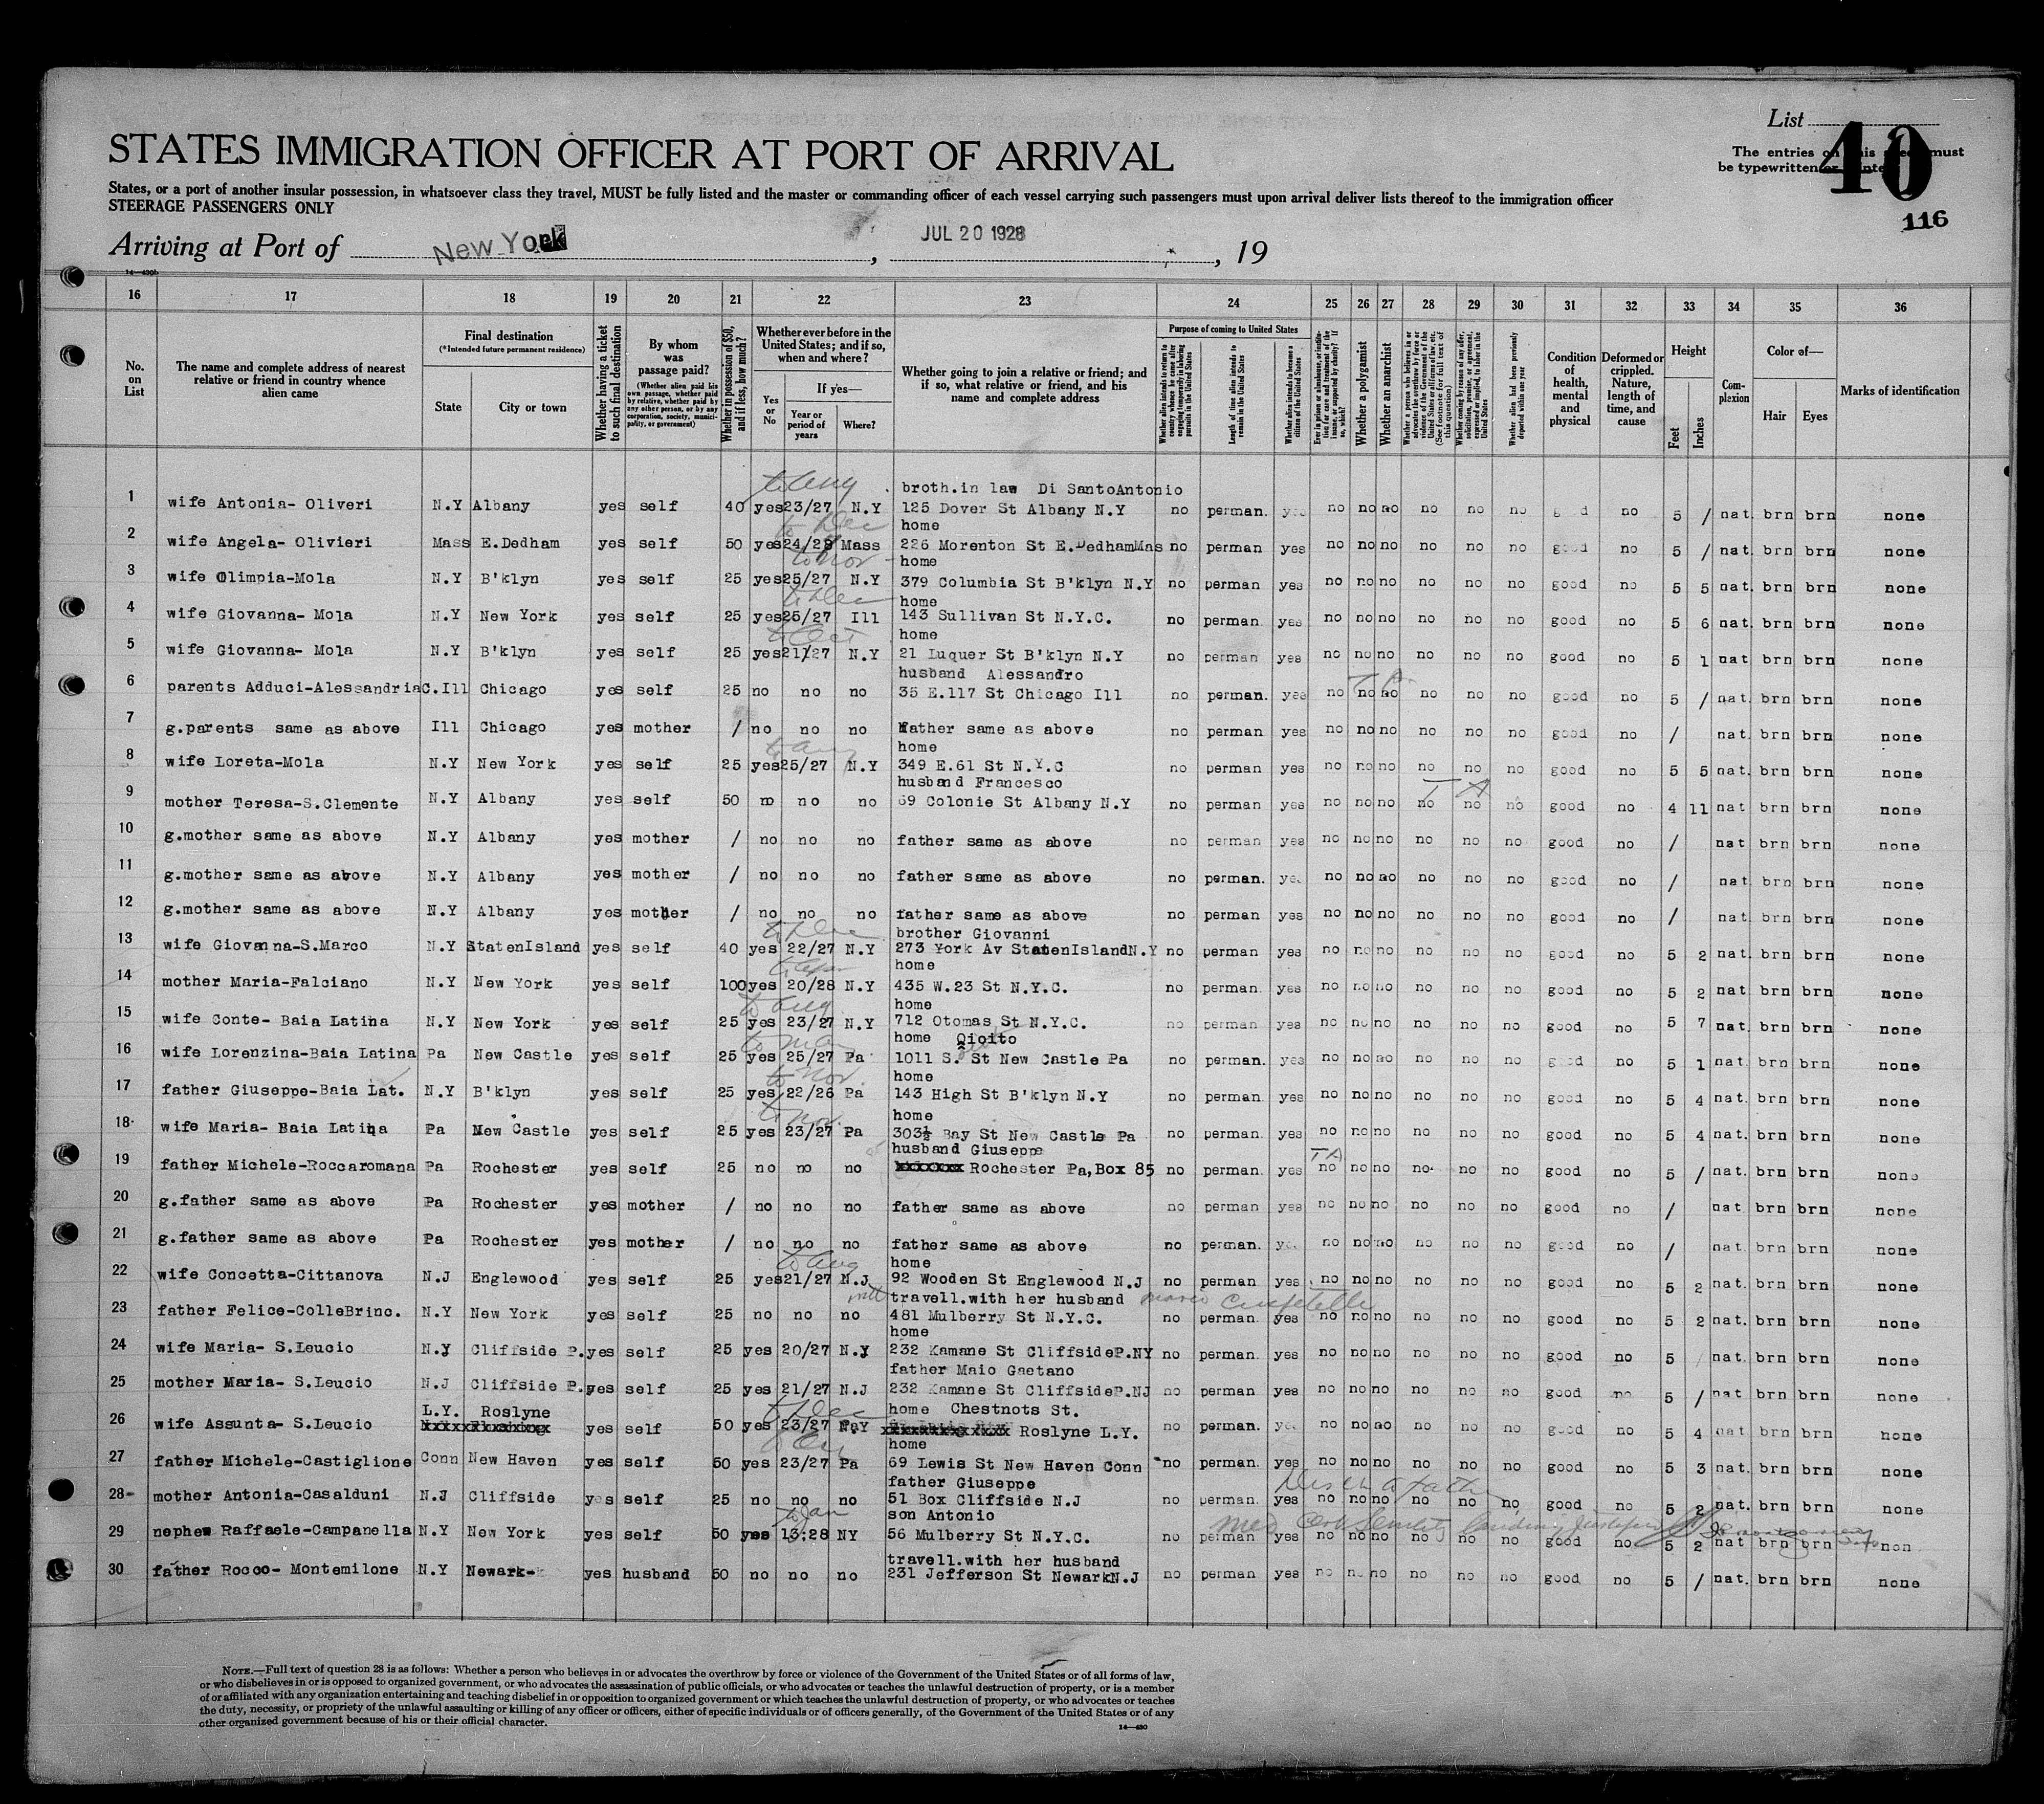 List
40
The entries on this sheet must
be typewritten or printed
116
STATES IMMIGRATION OFFICER AT PORT OF ARRIVAL
States, or a port of another insular possession, in whatsoever class they travel, MUST be fully listed and the master or commanding officer of each vessel carrying such passengers must upon arrival deliver lists thereof to the immigration officer
STEERAGE PASSENGERS ONLY
Arriving at Port of New York, JUL 20 1928, 19
14—430b
16 17 18 19 20 21 22 23 24 25 26 27 28 29 30 31 32 33 34 35 36
No. on List
The name and complete address of nearest relative or friend in country whence alien came
Final destination
(*Intended future permanent residence)
State
City or town
Whether having a ticket to such final destination
By whom was passage paid?
(Whether alien paid his own passage, whether paid by relative, whether paid by any other person, or by any corporation, society, municipality, or government)
Whether in possession of $50, and if less, how much?
Whether ever before in the United States; and if so, when and where?
Yes or No
If yes—
Year or period of years
Where?
Whether going to join a relative or friend; and if so, what relative or friend, and his name and complete address
Purpose of coming to United States
Whether alien intends to return to country whence he came after engaging temporarily in laboring pursuits in the United States
Length of time alien intends to remain in the United States
Whether alien intends to become a citizen of the United States
Ever in prison or almshouse, or institution for care and treatment of the insane, or supported by charity? If so, which?
Whether a polygamist
Whether an anarchist
Whether a person who believes in or advocates the overthrow by force or violence of the Government of the United States or all forms of law, etc. (See footnote for full text of this question)
Whether coming by reason of any offer, solicitation, promise, or agreement, expressed or implied, to labor in the United States
Whether alien had been previously deported within one year
Condition of health, mental and physical
Deformed or crippled. Nature, length of time, and cause
Height
Feet
Inches
Complexion
Color of—
Hair
Eyes
Marks of identification
to Aug broth.in law Di SantoAntonio
1 wife Antonia- Oliveri N.Y Albany yes self 40 yes 23/27 N.Y 125 Dover St Albany N.Y no perman. yes no no no no no no good no 5 / nat. brn brn none
to Dec home
2 wife Angela- Olivieri Mass E.Dedham yes self 50 yes 24/28 Mass 226 Morenton St E.DedhamMas no perman yes no no no no no no good no 5 / nat. brn brn none
to Nov home
3 wife Olimpia-Mola N.Y B'klyn yes self 25 yes 25/27 N.Y 379 Columbia St B'klyn N.Y no perman yes no no no no no no good no 5 5 nat. brn brn none
to Dec home
4 wife Giovanna- Mola N.Y New York yes self 25 yes 25/27 Ill 143 Sullivan St N.Y.C. no perman. yes no no no no no no good no 5 6 nat. brn brn none
to Oct home
5 wife Giovanna- Mola N.Y B'klyn yes self 25 yes 21/27 N.Y 21 Luquer St B'klyn N.Y no perman yes no no no no no no good no 5 1 nat brn brn none
husband Alessandro T A
6 parents Adduci-AlessandriaC. Ill Chicago yes self 25 no no no 35 E.117 St Chicago Ill no perman. yes no no no no no no good no 5 / nat. brn brn none
7 g.parents same as above Ill Chicago yes mother / no no no father same as above no perman yes no no no no no no good no / nat. brn brn none
to Aug home
8 wife Loreta-Mola N.Y New York yes self 25 yes 25/27 N.Y 349 E.61 St N.Y.C no perman yes no no no no no no good no 5 5 nat. brn brn none
husband Francesco T A
9 mother Teresa-S.Clemente N.Y Albany yes self 50 no no no 69 Colonie St Albany N.Y no perman yes no no no no no no good no 4 11 nat brn brn none
10 g.mother same as above N.Y Albany yes mother / no no no father same as above no perman yes no no no no no no good no / nat brn brn none
11 g.mother same as above N.Y Albany yes mother / no no no father same as above no perman. yes no no no no no no good no / nat. brn brn none
12 g.mother same as above N.Y Albany yes mother / no no no father same as above no perman yes no no no no no no good no / nat. brn brn none
to Dec brother Giovanni
13 wife Giovanna-S.Marco N.Y StatenIsland yes self 40 yes 22/27 N.Y 273 York Av StatenIslandN.Y no perman yes no no no no no no good no 5 2 nat. brn brn none
home
14 mother Maria-Falciano N.Y New York yes self 100 yes 20/28 N.Y 435 W.23 St N.Y.C. no perman yes no no no no no no good no 5 2 nat brn brn none
to Aug home
15 wife Conte- Baia Latina N.Y New York yes self 25 yes 23/27 N.Y 712 Otomas St N.Y.C. no perman yes no no no no no no good no 5 7 nat. brn brn none
home
16 wife Lorenzina-Baia Latina Pa New Castle yes self 25 yes 25/27 Pa 1011 S. St New Castle Pa no perman. yes no no no no no no good no 5 1 nat. brn brn none
to Nov. home
17 father Giuseppe-Baia Lat. N.Y B'klyn yes self 25 yes 22/26 Pa 143 High St B'klyn N.Y no perman. yes no no no no no no good no 5 4 nat. brn brn none
to Nov. home
18 wife Maria- Baia Latina Pa New Castle yes self 25 yes 23/27 Pa 303½ Bay St New Castle Pa no perman. yes no no no no no no good no 5 4 nat. brn brn none
husband Giuseppe T A
19 father Michele-Roccaromana Pa Rochester yes self 25 no no no Rochester Pa,Box 85 no perman. yes no no no no no no good no 5 / nat. brn brn none
20 g.father same as above Pa Rochester yes mother / no no no father same as above no perman yes no no no no no no good no / nat. brn brn none
21 g.father same as above Pa Rochester yes mother / no no no father same as above no perman. yes no no no no no no good no / nat. brn brn none
to Aug home
22 wife Concetta-Cittanova N.J Englewood yes self 25 yes 21/27 N.J 92 Wooden St Englewood N.J no perman yes no no no no no no good no 5 2 nat. brn brn none
travell.with her husband
23 father Felice-ColleBrinc. N.Y New York yes self 25 no no no 481 Mulberry St N.Y.C. no perman. yes no no no no no no good no 5 2 nat. brn brn none
home
24 wife Maria- S.Leucio N.J Cliffside P. yes self 25 yes 20/27 N.J 232 Kamane St CliffsideP.NY no perman. yes no no no no no no good no 5 nat. brn brn none
father Maio Gaetano
25 mother Maria- S.Leucio N.J Cliffside P. yes self 25 yes 21/27 N.J 232 Kamane St CliffsideP.NJ no perman yes no no no no no no good no 5 / nat brn brn none
L.Y. Roslyne to Dec home Chestnots St.
26 wife Assunta- S.Leucio yes self 50 yes 23/27 N.Y Roslyne L.Y. no perman. yes no no no no no no good no 5 4 nat brn brn none
home
27 father Michele-Castiglione Conn New Haven yes self 50 yes 23/27 Pa 69 Lewis St New Haven Conn no perman. yes no no no no no no good no 5 3 nat. brn brn none
father Giuseppe
28 mother Antonia-Casalduni N.J Cliffside yes self 25 no no no 51 Box Cliffside N.J no perman. yes no no no no no no good no 5 2 nat. brn brn none
to Jan son Antonio
29 nephew Raffaele-Campanella N.Y New York yes self 50 yes 13:28 NY 56 Mulberry St N.Y.C. no perman yes no no no no no no good no 5 2 nat brn brn non
travell.with her husband
30 father Rocco- Montemilone N.Y Newark- yes husband 50 no no no 231 Jefferson St NewarkN.J no perman yes no no no no no no good no 5 / nat. brn brn none
NOTE.—Full text of question 28 is as follows: Whether a person who believes in or advocates the overthrow by force or violence of the Government of the United States or of all forms of law,
or who disbelieves in or is opposed to organized government, or who advocates the assassination of public officials, or who advocates or teaches the unlawful destruction of property, or is a member
of or affiliated with any organization entertaining and teaching disbelief in or opposition to organized government or which teaches the unlawful destruction of property, or who advocates or teaches
the duty, necessity, or propriety of the unlawful assaulting or killing of any officer or officers, either of specific individuals or of officers generally, of the Government of the United States or of any
other organized government because of his or their official character.
14—430